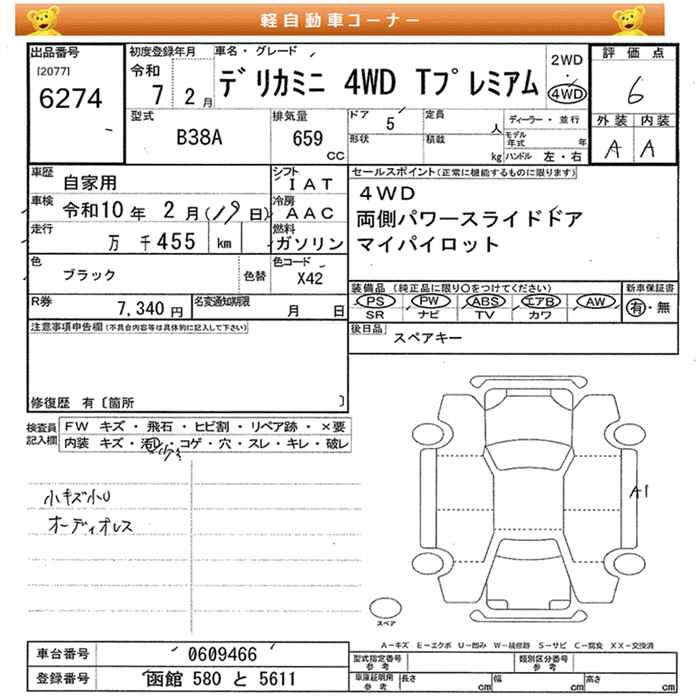 軽自動車コーナー
出品番号
[2077]
6274
初度登録年月
令和
7 2月
車名・グレード
デリカミニ 4WD Tプレミアム
2WD
・
4WD
評価点
6
外装 内装
A A
型式
B38A
排気量
659
CC
ドア
5
定員
人
形状
積載
kg
ディーラー・並行
モデル年式
年
ハンドル 左・右
車歴
自家用
シフト
IAT
車検 令和10年 2月(19日)
冷房
AAC
走行
万 千455 km
燃料
ガソリン
色
ブラック
色替
色コード
X42
R券
7,340円
名変通知期限
月 日
セールスポイント(正常に機能するものに限ります)
4WD
両側パワースライドドア
マイパイロット
装備品 (純正品に限り○をつけてください)
新車保証書
PS PW ABS エアB AW
有・無
SR ナビ TV カワ
後日品
スペアキー
注意事項申告欄(不具合内容等は具体的に記入して下さい)
修復歴 有〔箇所 〕
検査員記入欄
FW キズ・飛石・ヒビ割・リペア跡・×要
内装 キズ・汚レ・コゲ・穴・スレ・キレ・破レ
少々
小キズ小U
オーディオレス
A1
スペア
A−キズ E−エクボ U−凹み W−補修跡 S−サビ C−腐食 XX−交換済
車台番号
0609466
登録番号
函館 580 と 5611
型式指定番号
参考
類別区分番号
参考
車庫証明用
参考
長さ
cm
幅
cm
高さ
cm